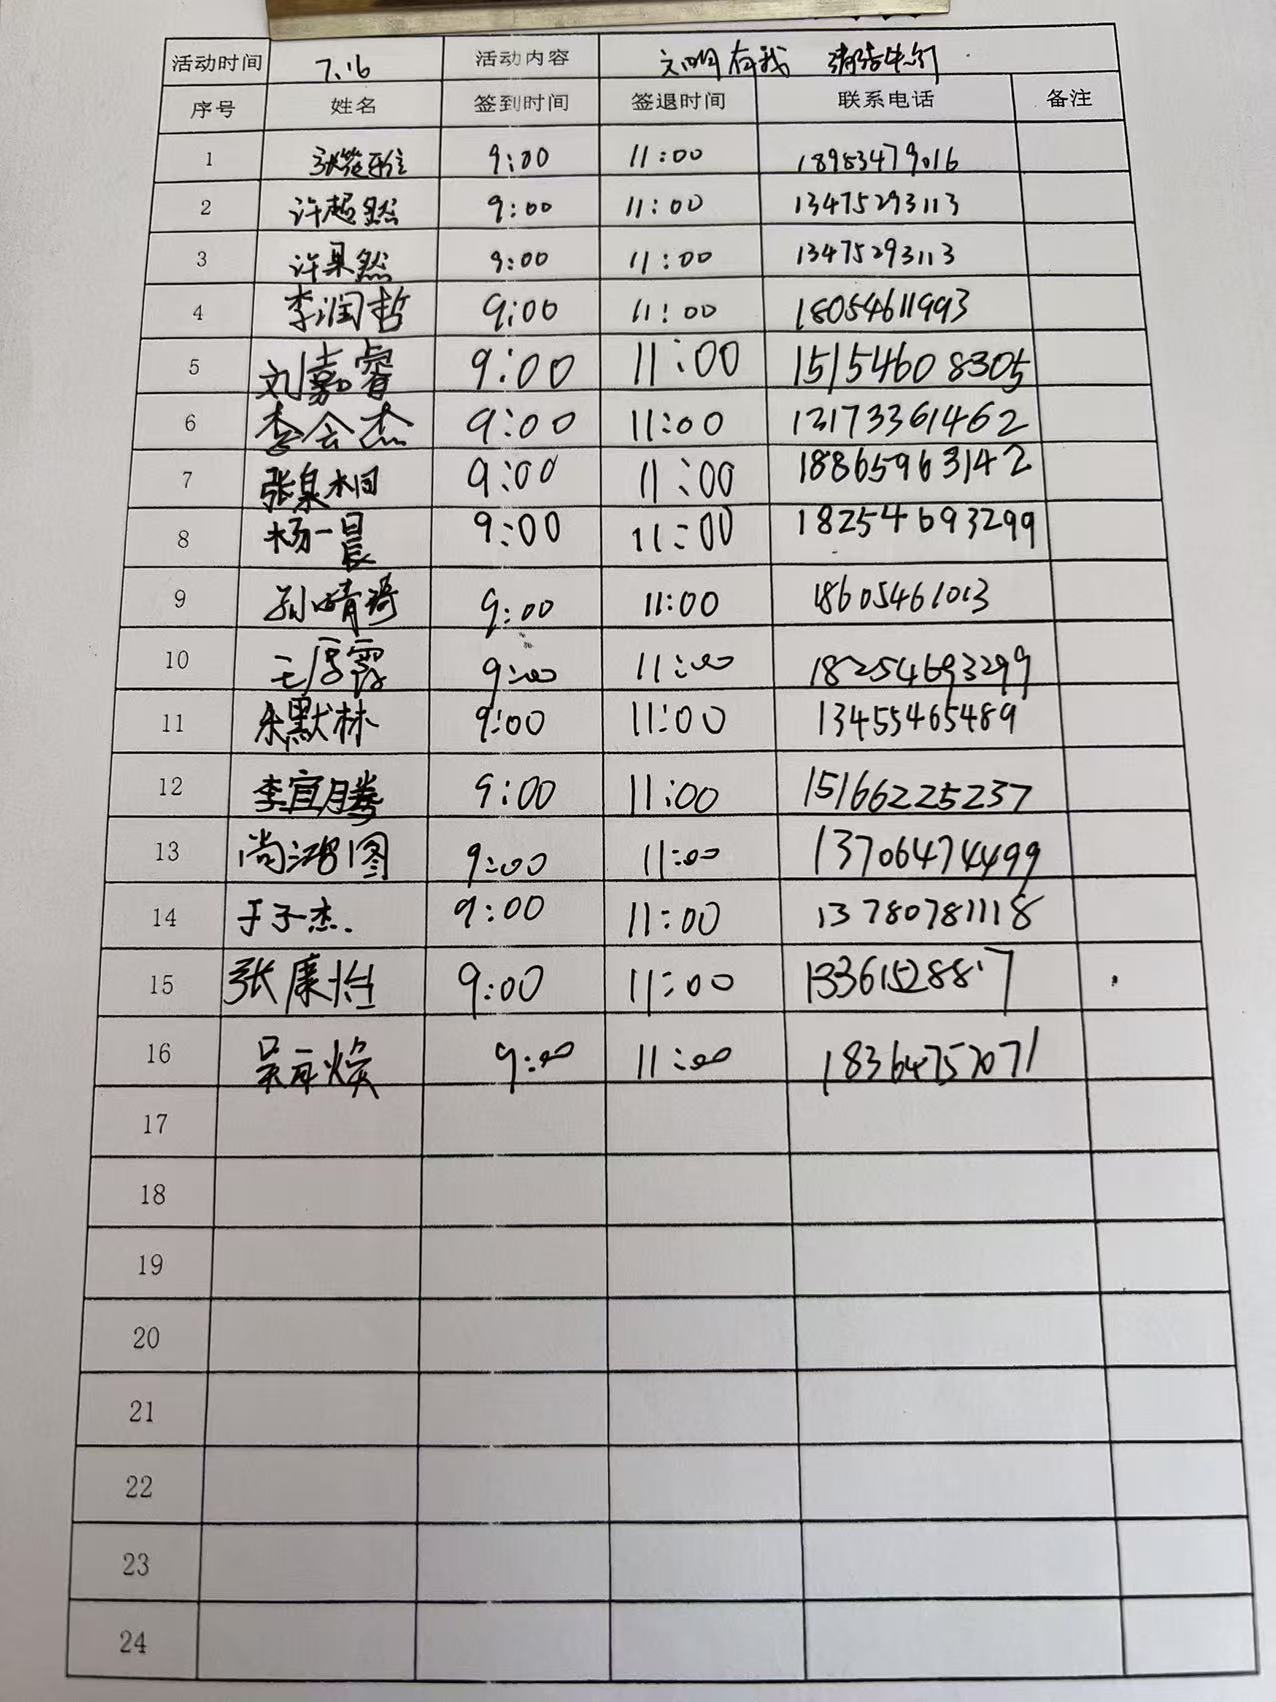 活动时间 7.16 活动内容 文明有我 清洁先行
序号 姓名 签到时间 签退时间 联系电话 备注
1 9:00 11:00 18953479016
2 许超然 9:00 11:00 13475293113
3 许果然 9:00 11:00 13475293113
4 李润哲 9:00 11:00 18054611993
5 刘嘉睿 9:00 11:00 15154608305
6 李会杰 9:00 11:00 13173361462
7 张泉水 9:00 11:00 18865963142
8 杨一晨 9:00 11:00 18254693299
9 孙晴琦 9:00 11:00 18605461013
10 王厚霖 9:00 11:00 18254693299
11 朱默林 9:00 11:00 13455465489
12 李宜腾 9:00 11:00 15166225237
13 尚鸿图 9:00 11:00 13706474499
14 于子杰. 9:00 11:00 13780781118
15 张康怡 9:00 11:00 13361528817
16 吴 焕 9:00 11:00 18364757071
17
18
19
20
21
22
23
24